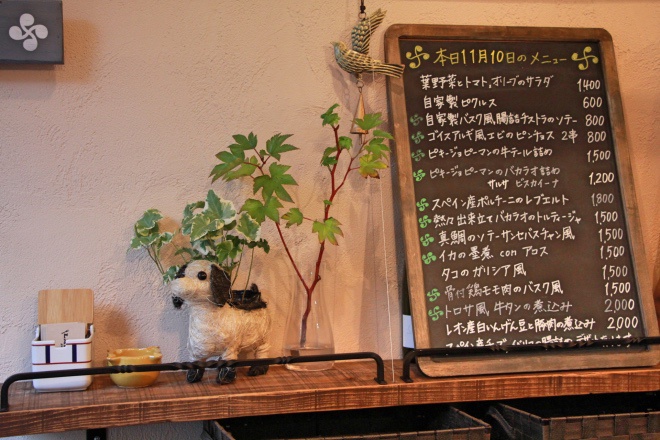 本日11月10日のメニュー
葉野菜とトマト,オリーブのサラダ 1400
自家製ピクルス 600
自家製バスク風腸詰チストラのソテー 800
ゴイスアルギ風エビのピンチョス 2串 800
ピキージョピーマンの牛テール詰め 1,500
ピキージョピーマンのバカラオ詰め
サルサ ビスカイーナ 1,200
スペイン産ポルチーニのレブエルト 1,800
熱々出来立てバカラオのトルティージャ 1,500
真鯛のソテーサンセバスチャン風 1,500
イカの墨煮 con アロス 1,500
タコのガリシア風 1,500
骨付鶏モモ肉のバスク風 1,500
トロサ風,牛タンの煮込み 2,000
レオン産白いんげん豆と豚肉の煮込み 2,000